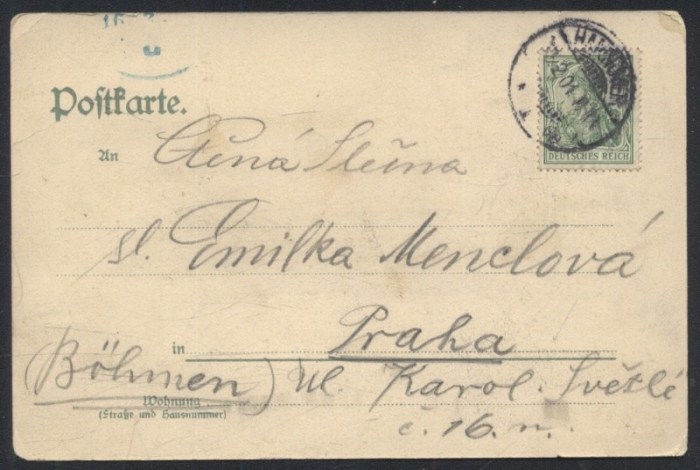 Postkarte.
HANNOVER
2.01.
DEUTSCHES REICH
An Ctěná Slečna
sl. Emilka Menclová
in Praha
(Böhmen) Ul. Karol. Světlé
Wohnung
(Straße und Hausnummer)
č. 16. n.